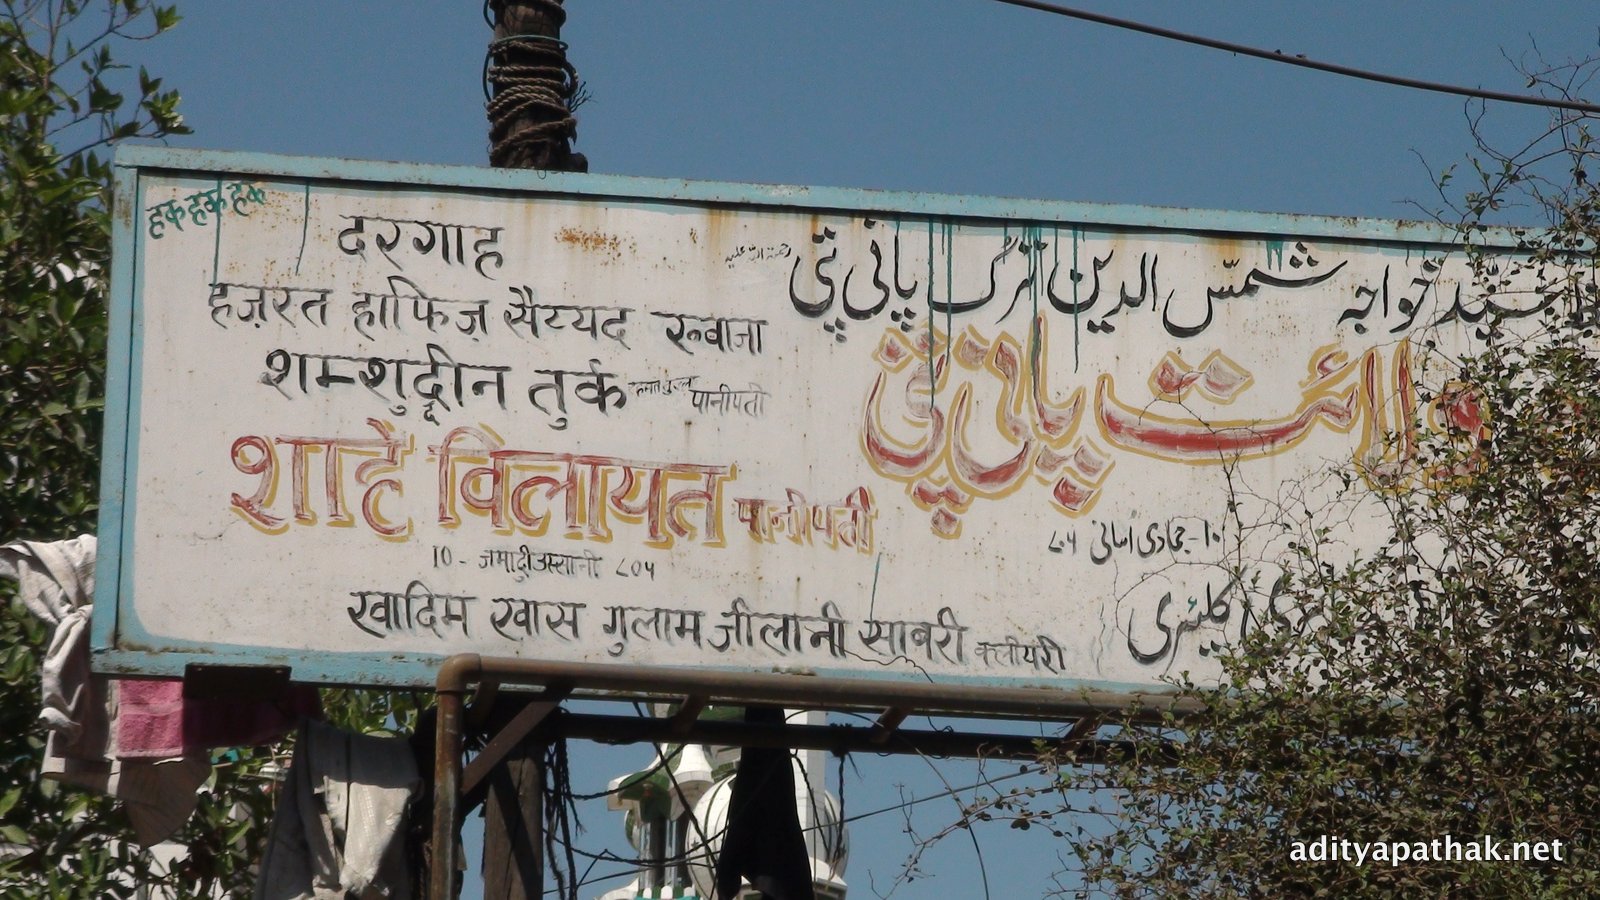 हक हक हक
दरगाह
हज़रत हाफिज़ सैय्यद ख्वाजा
शम्शुद्दीन तुर्क पानीपती
शाहे विलायत पानीपती
10 - जमादीउस्सानी ८०५
खादिम खास गुलाम जीलानी साबरी कलीयरी
سیّد خواجہ شمسّ الدین ترک پانی پتی رحمتہ اللہ علیہ
ولائت پانی پتی
۱۰-جمادی
کلیئری
adityapathak.net